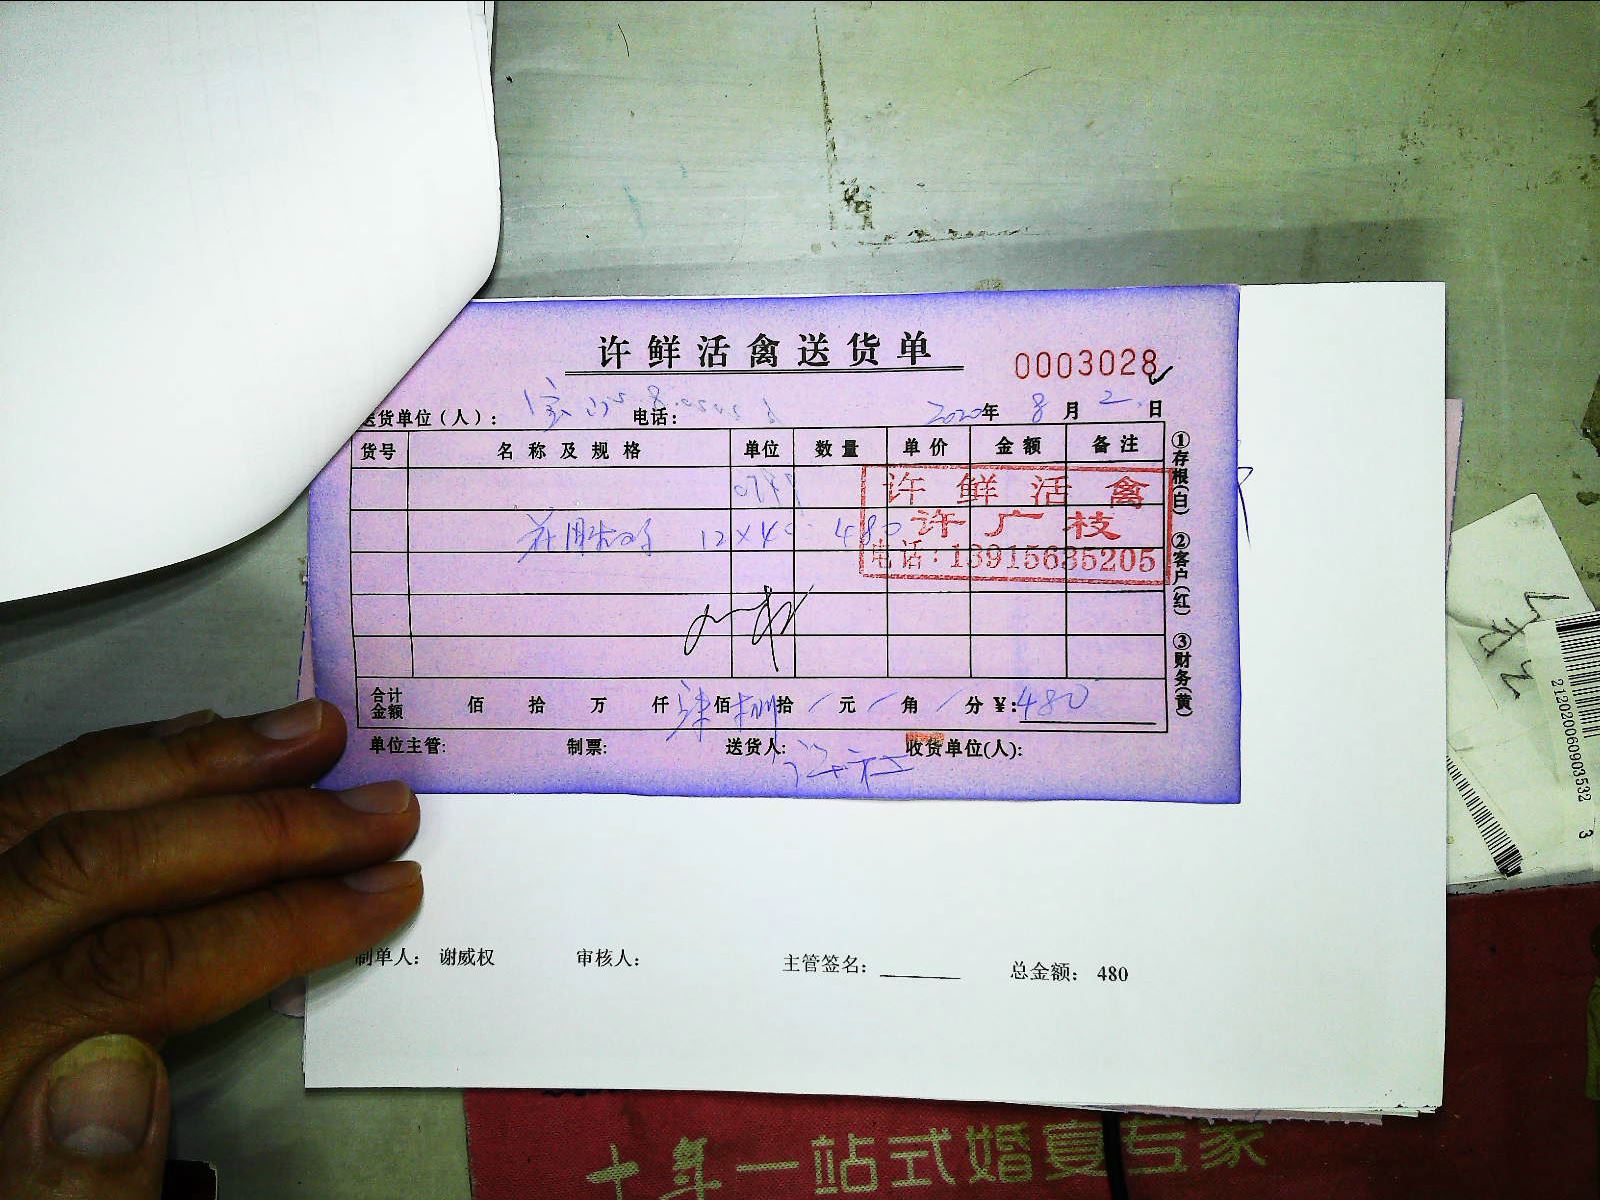 许鲜活禽送货单
0003028
送货单位（人）： 电话： 2020年 8月 2日
货号 名称及规格 单位 数量 单价 金额 备注
许鲜活禽
许广枝
电话：13915635205
12×40 480
合计金额 佰 拾 万 仟 佰 捌拾 元 角 分 ¥：480
单位主管： 制票： 送货人： 收货单位(人)：
①存根(白) ②客户(红) ③财务(黄)
制单人： 谢威权 审核人： 主管签名： 总金额： 480
21202020060903532 3
十年一站式婚宴专家